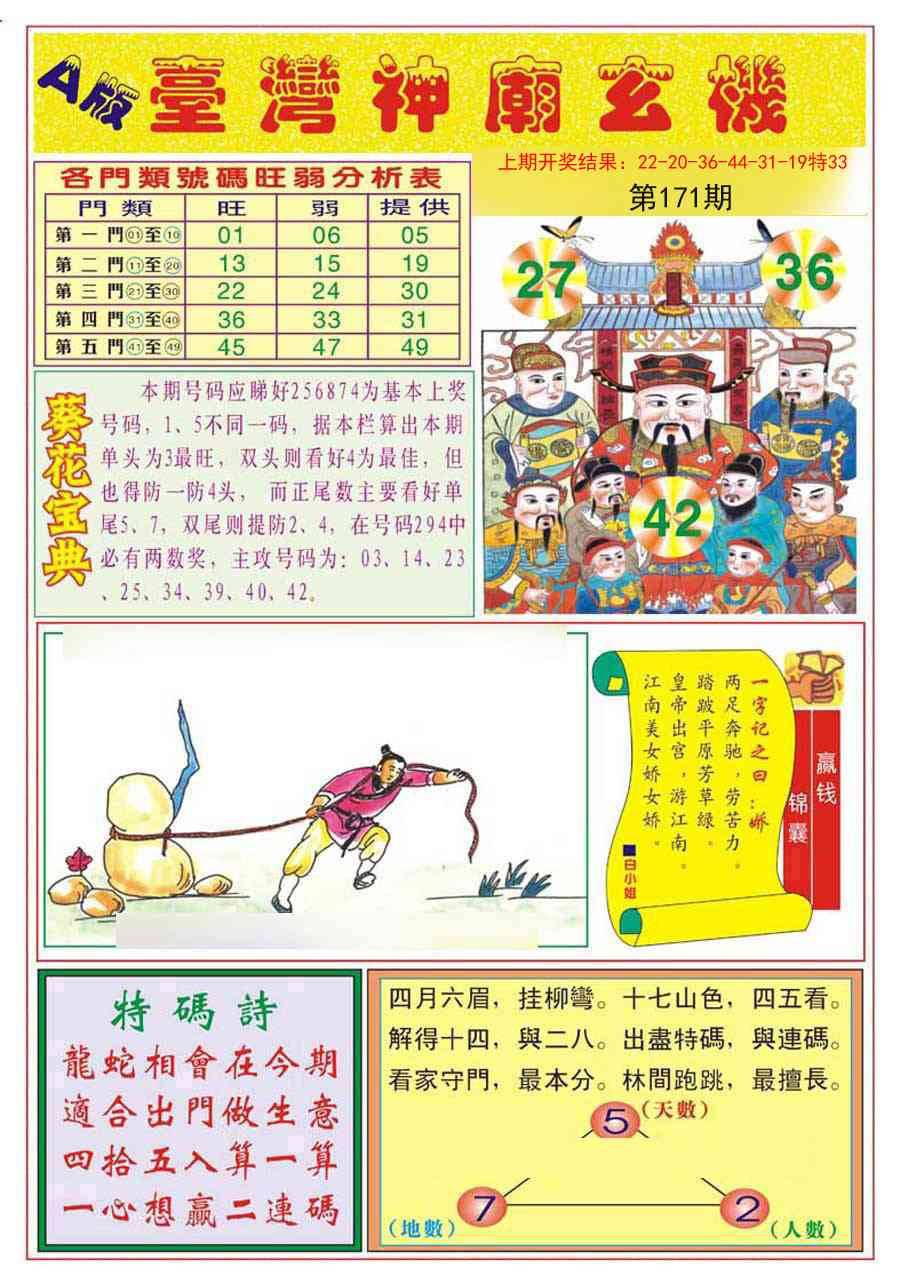 A版
臺灣神廟玄機
各門類號碼旺弱分析表
門類 旺 弱 提供
第一門01至10 01 06 05
第二門11至20 13 15 19
第三門21至30 22 24 30
第四門31至40 36 33 31
第五門41至49 45 47 49
上期开奖结果：22-20-36-44-31-19特33
第171期
27
36
42
葵花宝典
本期号码应睇好256874为基本上奖
号码，1、5不同一码，据本栏算出本期
单头为3最旺，双头则看好4为最佳，但
也得防一防4头， 而正尾数主要看好单
尾5、7，双尾则提防2、4，在号码294中
必有两数奖，主攻号码为：03、14、23
、25、34、39、40、42。
一字记之曰：娇
两足奔驰，劳苦力。
踏跛平原芳草绿。
皇帝出宫，游江南。
江南美女娇女娇。
白小姐
赢钱
锦囊
特碼詩
龍蛇相會在今期
適合出門做生意
四拾五入算一算
一心想贏二連碼
四月六眉，挂柳彎。十七山色，四五看。
解得十四，與二八。出盡特碼，與連碼。
看家守門，最本分。林間跑跳，最擅長。
5
(天數)
7
(地數)
2
(人數)